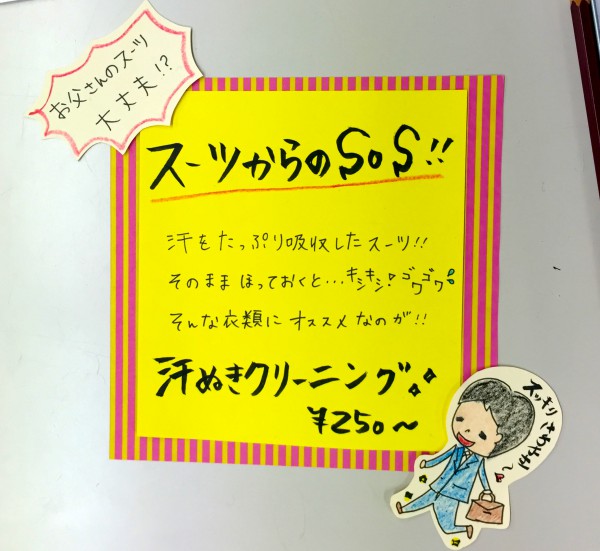 お父さんのスーツ
大丈夫!?
スーツからのSOS!!
汗をたっぷり吸収したスーツ!!
そのままほっておくと…キシキシ!ゴワゴワ
そんな衣類にオススメなのが!!
汗ぬきクリーニング
¥250〜
スッキリ
さわやか〜